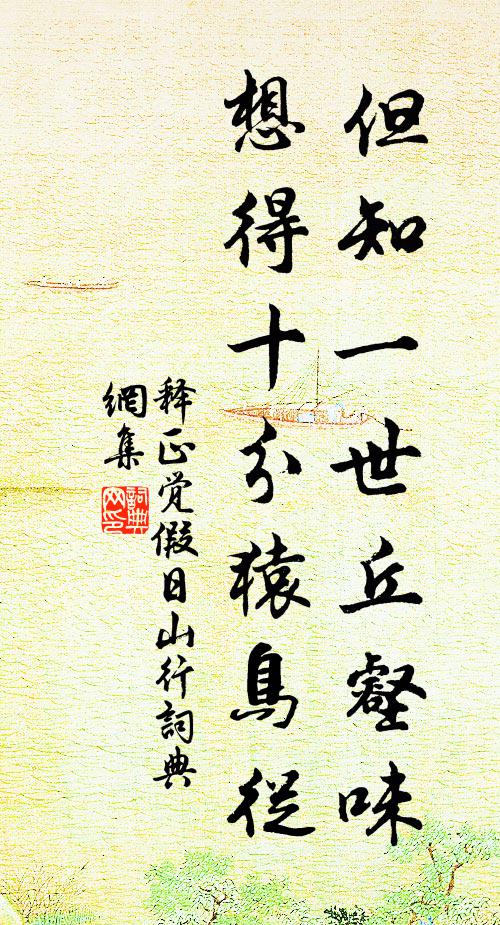 但知一世丘壑味
想得十分猿鳥從
释正觉假日山行詞典
網集
詞典
网印